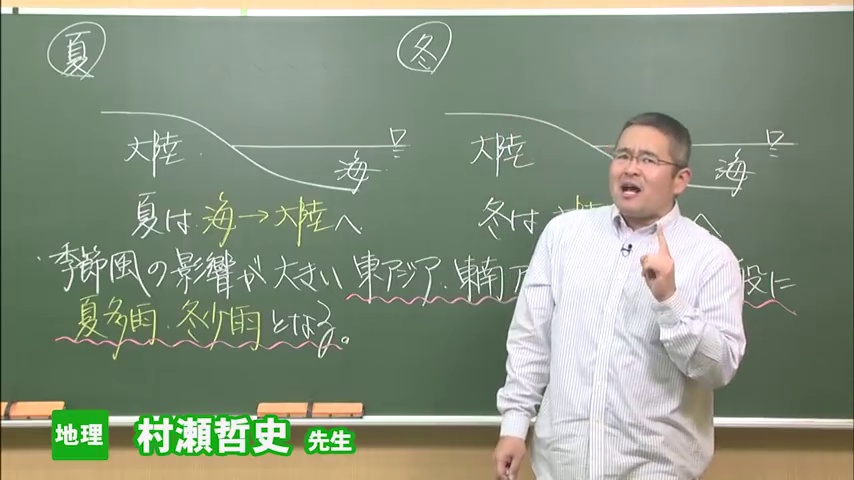 夏
冬
大陸
海
大陸
海
夏は 海→大陸へ
冬は 大陸 へ
季節風の影響が 大きい 東アジア・東南ア 般に
夏多雨・冬少雨となる。
地理 村瀬哲史 先生